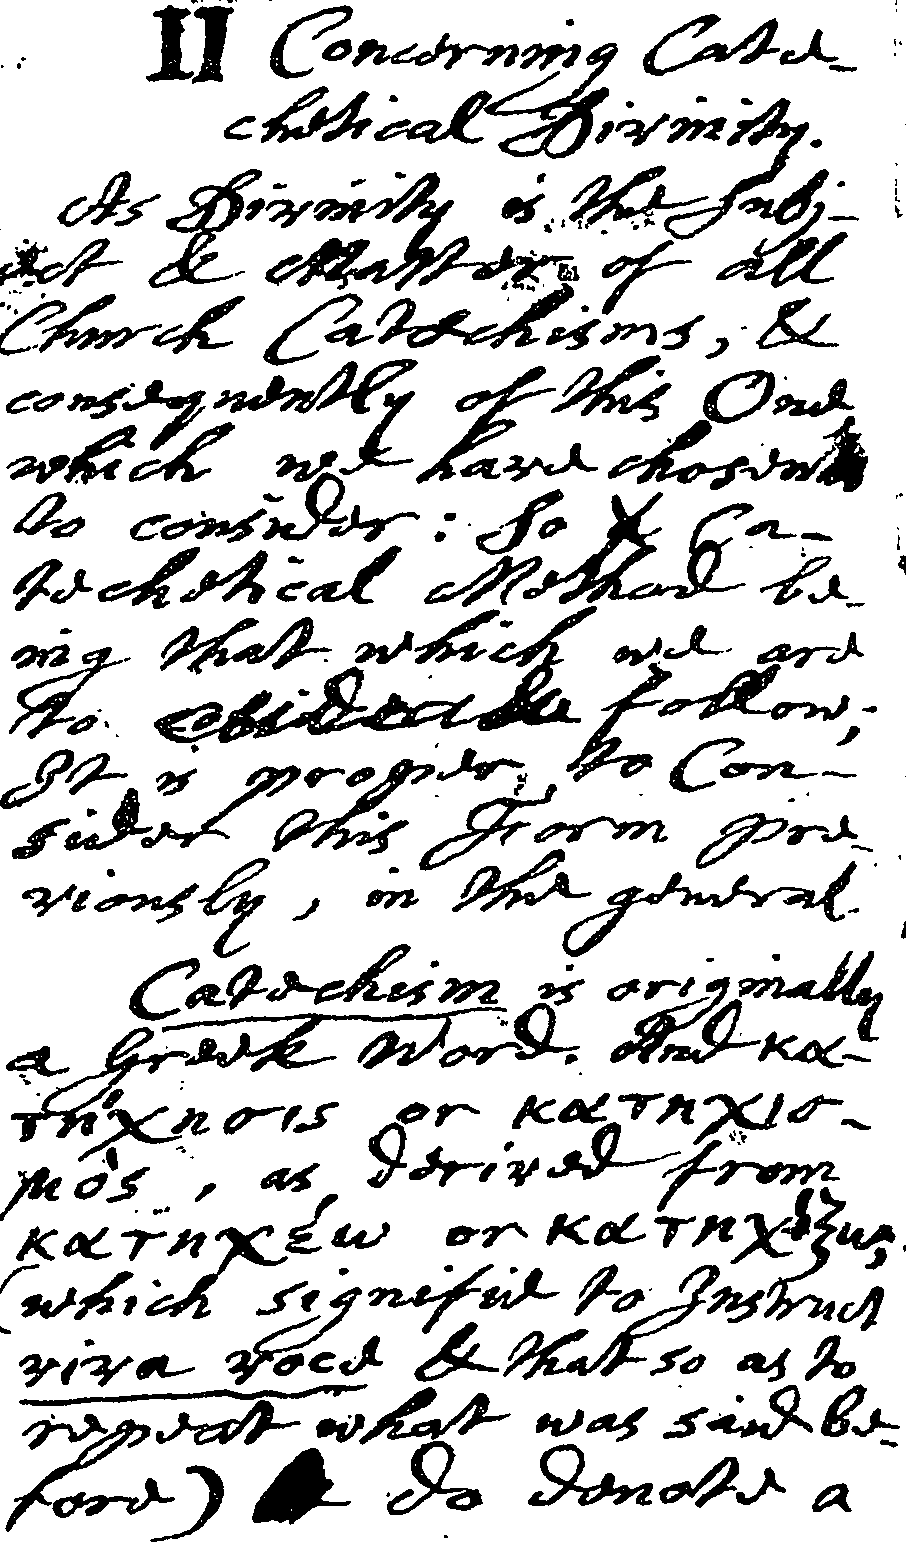 II Concerning Cate-
chetical Divinity.
As Divinity is the Subj-
ect & Matter of all
Church Catechisms, &
consequently of this One
which we have chosen
to consider: So Ca-
techetical Method be-
ing that which we are
to follow;
It is proper, to Con-
sider this Form pre-
viously, in the general.
Catechism is originally
a Greek Word. And κα-
τήχησις or κατηχισ-
μὸς, as derived from
κατηχέω or κατηχίζω,
(which signifie to Instruct
viva voce & that so as to
repeat what was said be-
fore) do denote a